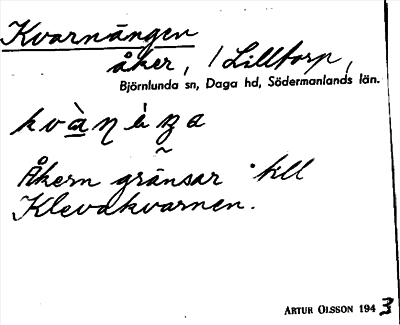 Kvarnängen
åker, / Lilltorp,
Björnlunda sn, Daga hd, Södermanlands län.
Åkern gränsar till
Klevakvarnen.
ARTUR OLSSON 1943